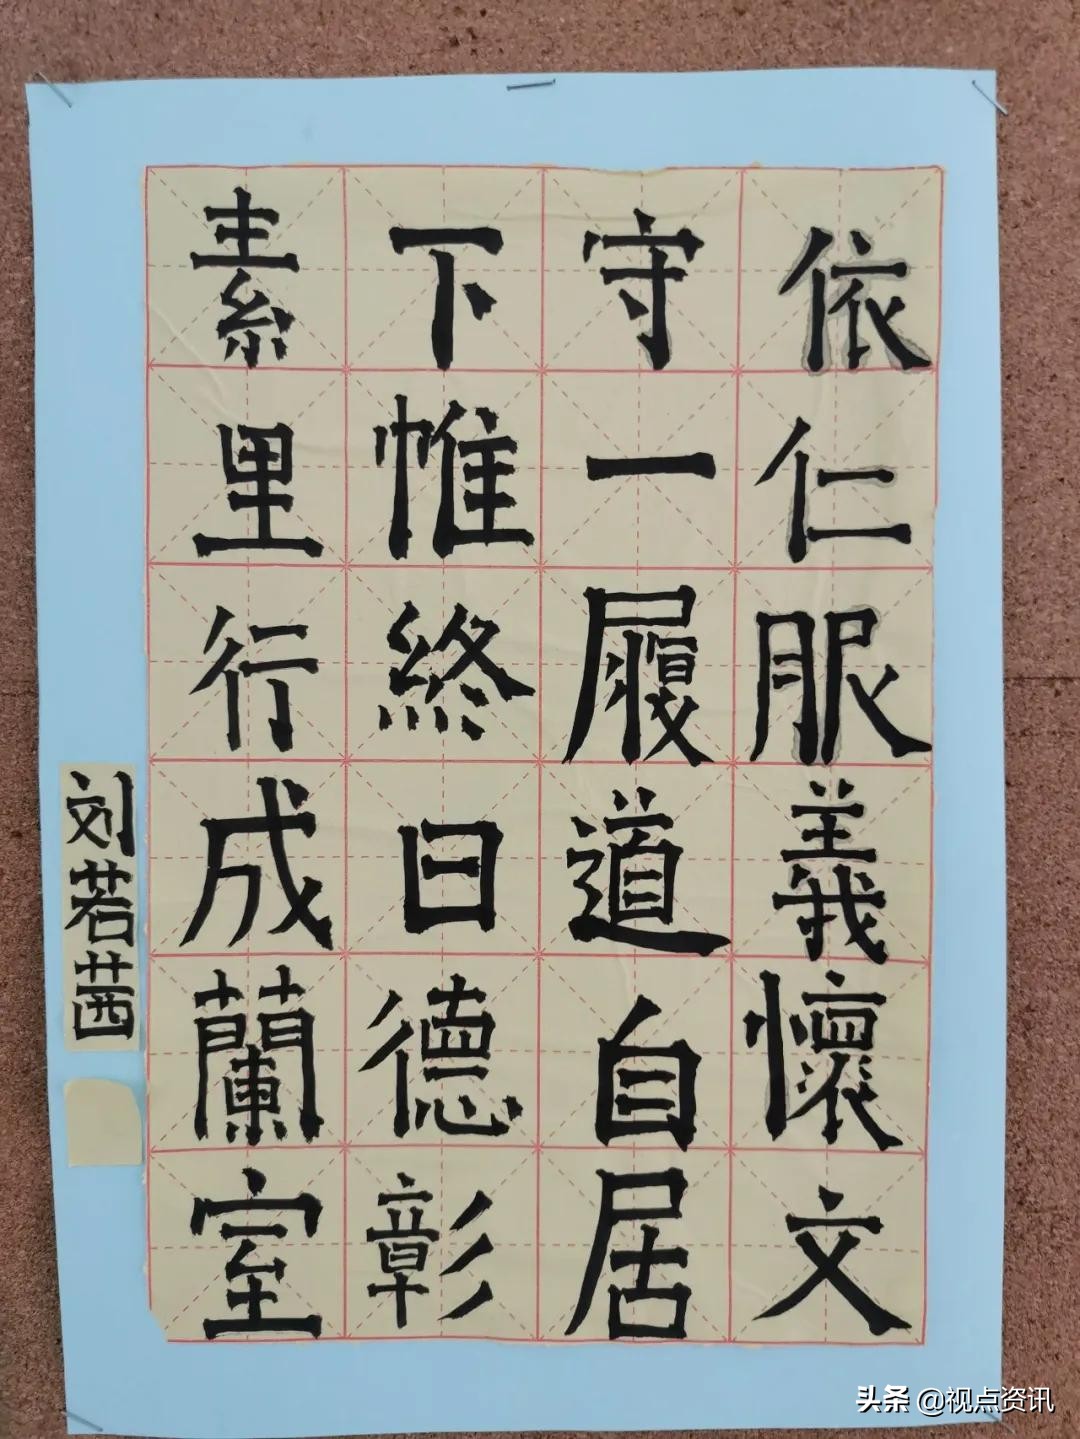 依仁服義懷文
守一履道自居
下惟終日德彰
素里行成蘭室
刘若茜
头条 @视点资讯